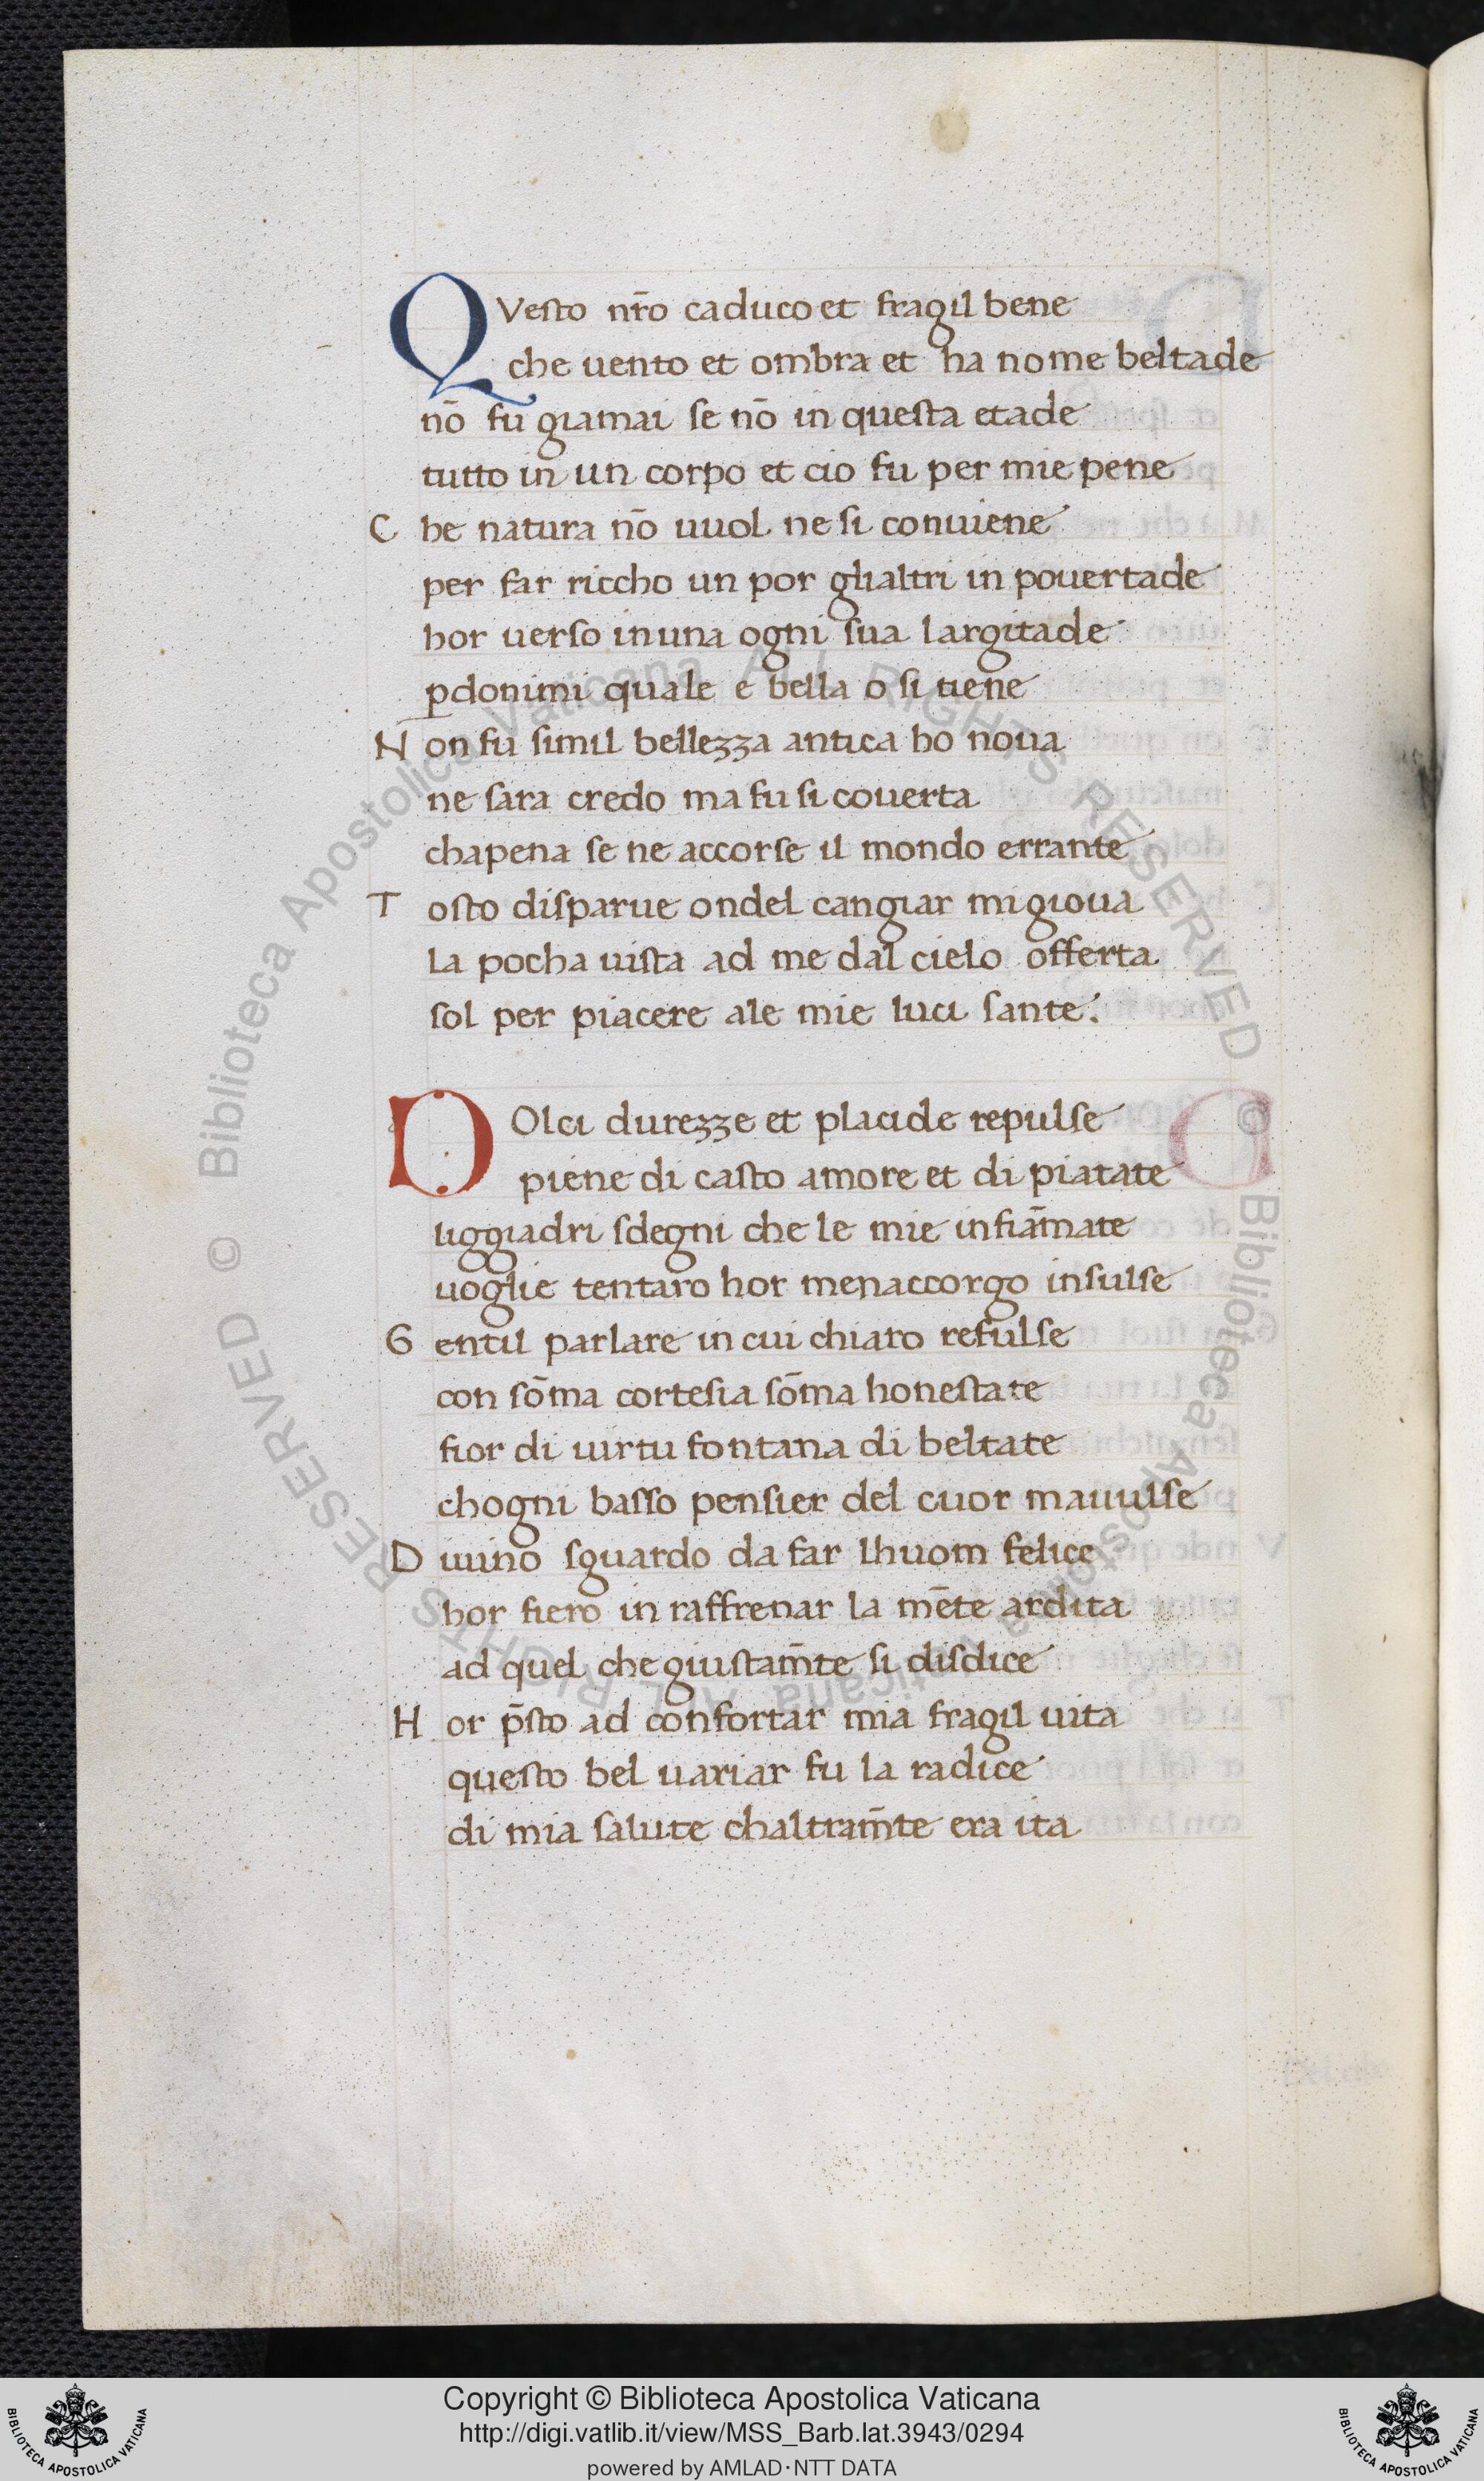 QVesto nr̄o caduco et fragil bene
che uento et ombra et ha nome beltade
nō fu giamai se nō in questa etade
tutto in un corpo et cio fu per mie pene
C he natura nō uuol ne si conuiene
per far riccho un por glialtri in pouertade
hor uerso in una ogni sua largitade
ꝑdonimi quale e bella o si tiene
N on fu simil bellezza antica ho noua
ne sara credo ma fu si couerta
chapena se ne accorse il mondo errante
T osto disparue ondel cangiar mi gioua
la pocha uista ad me dal cielo offerta
sol per piacere ale mie luci sante.
DOlci durezze et placide repulse
piene di casto amore et di piatate
liggiadri sdegni che le mie infiām̄ate
uoglie tentaro hor menaccorgo insulse
G entil parlare in cui chiaro refulse
con sōma cortesia sōma honestate
fior di uirtu fontana di beltate
chogni basso pensier del cuor mauulse
D iuino sguardo da far lhuom felice
hor fiero in raffrenar la mēte ardita
ad quel che giustam̄te si disdice
H or p̄sto ad confortar mia fragil uita
questo bel uariar fu la radice
di mia salute chaltram̄te era ita
Biblioteca Apostolica Vaticana ALL RIGHTS RESERVED ©
Biblioteca Apostolica Vaticana ALL RIGHTS RESERVED ©
Copyright © Biblioteca Apostolica Vaticana
http://digi.vatlib.it/view/MSS_Barb.lat.3943/0294
powered by AMLAD·NTT DATA
BIBLIOTECA APOSTOLICA VATICANA
BIBLIOTECA APOSTOLICA VATICANA